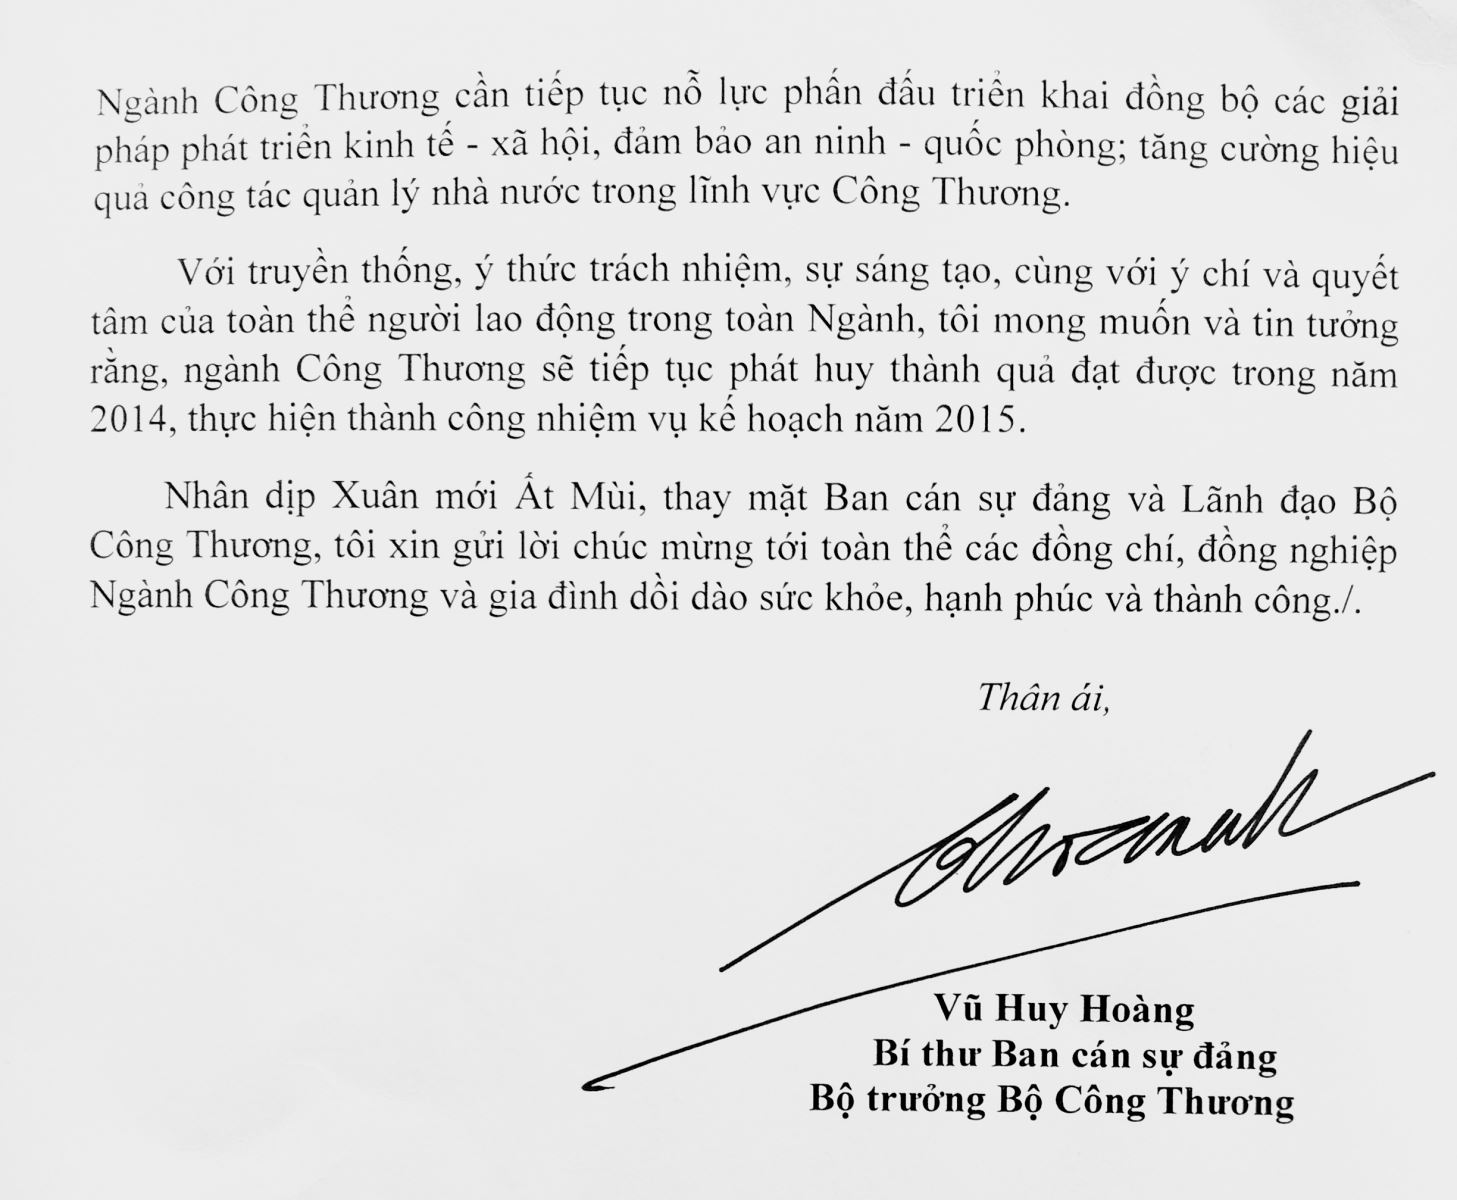 Ngành Công Thương cần tiếp tục nỗ lực phấn đấu triển khai đồng bộ các giải
pháp phát triển kinh tế - xã hội, đảm bảo an ninh - quốc phòng; tăng cường hiệu
quả công tác quản lý nhà nước trong lĩnh vực Công Thương.
Với truyền thống, ý thức trách nhiệm, sự sáng tạo, cùng với ý chí và quyết
tâm của toàn thể người lao động trong toàn Ngành, tôi mong muốn và tin tưởng
rằng, ngành Công Thương sẽ tiếp tục phát huy thành quả đạt được trong năm
2014, thực hiện thành công nhiệm vụ kế hoạch năm 2015.
Nhân dịp Xuân mới Ất Mùi, thay mặt Ban cán sự đảng và Lãnh đạo Bộ
Công Thương, tôi xin gửi lời chúc mừng tới toàn thể các đồng chí, đồng nghiệp
Ngành Công Thương và gia đình dồi dào sức khỏe, hạnh phúc và thành công./.
Thân ái,
Vũ Huy Hoàng
Bí thư Ban cán sự đảng
Bộ trưởng Bộ Công Thương